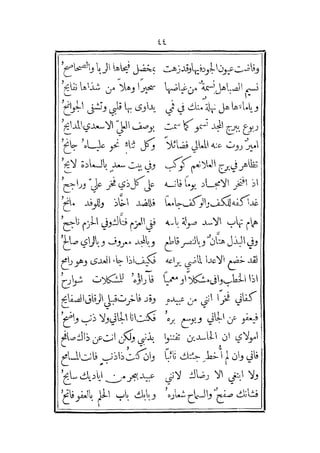 ٤٤
وفاضت عيون الجود فيها وقد زهت بمخضل فيحاها الربا والصحاصح
نسيم الصبا هل نسمة من غياضها سحيرا وهلا من شذاها نفايح
ويا ماءها هل نهلة منك في فمي يداوى بها قلبي وتشفى الجوانح
ربوع ببرج المجد تسمو كما سمت بوصف العلي الاسعدي المدايح
امير روت عنه المعالي فضائلا وكل ثناء نحو علياه جانح
تظاهر في برج العلا نعم كوكب وفي بيت سعد بالسعادة لايح
اذ افتخر الامجاد يوما فانه على كل ذي فخر علي وراجح
غدا كفه للكف والوكف جامعا فللضد اخاذ وللوفد مانح
همام تهاب الاسد صولة باسه ففي العزم فتاك وفي الحزم ناجح
وفي البذل هتان وبالنصر قاطع وبالمجد معروف وبالراي صالح
لقد خضع الاعدا لماضي يراعه فكيف اذا جاء العدى وهو رامح
اذا الخطب وافى مشكلا او معميا فآراؤه للمشكلات شوارح
كفاني فخرا انني من عبيده وقد فاخرت قبلي الرقاق الصفايح
فيعفو عن الجاني ويوسع بره فكنت انا الجاني ولا ذنب واضح
امولاي ان الحاسدين تفننوا بذنبي ولكن انت عن ذاك صافح
فاني وان لم أخط جئتك تائبا وان كنت ذا ذنب فانت المسامح
ولا ابتغي الا رضاك لانني عبيد ببحر من اياديك سابح
فشانك صفح والسماح شعاره وبابك باب الحلم بالعفو فاتح